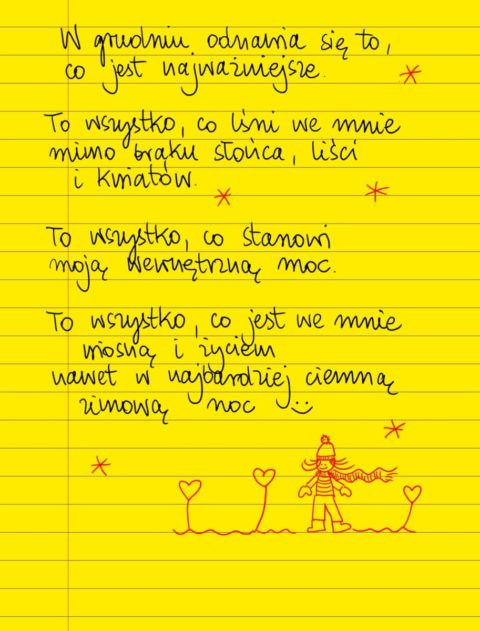 W grudniu odnawia się to,
co jest najważniejsze.
To wszystko, co lśni we mnie
mimo braku słońca, liści
i kwiatów.
To wszystko, co stanowi
moją wewnętrzną moc.
To wszystko, co jest we mnie
wiosną i życiem
nawet w najbardziej ciemną
zimową noc